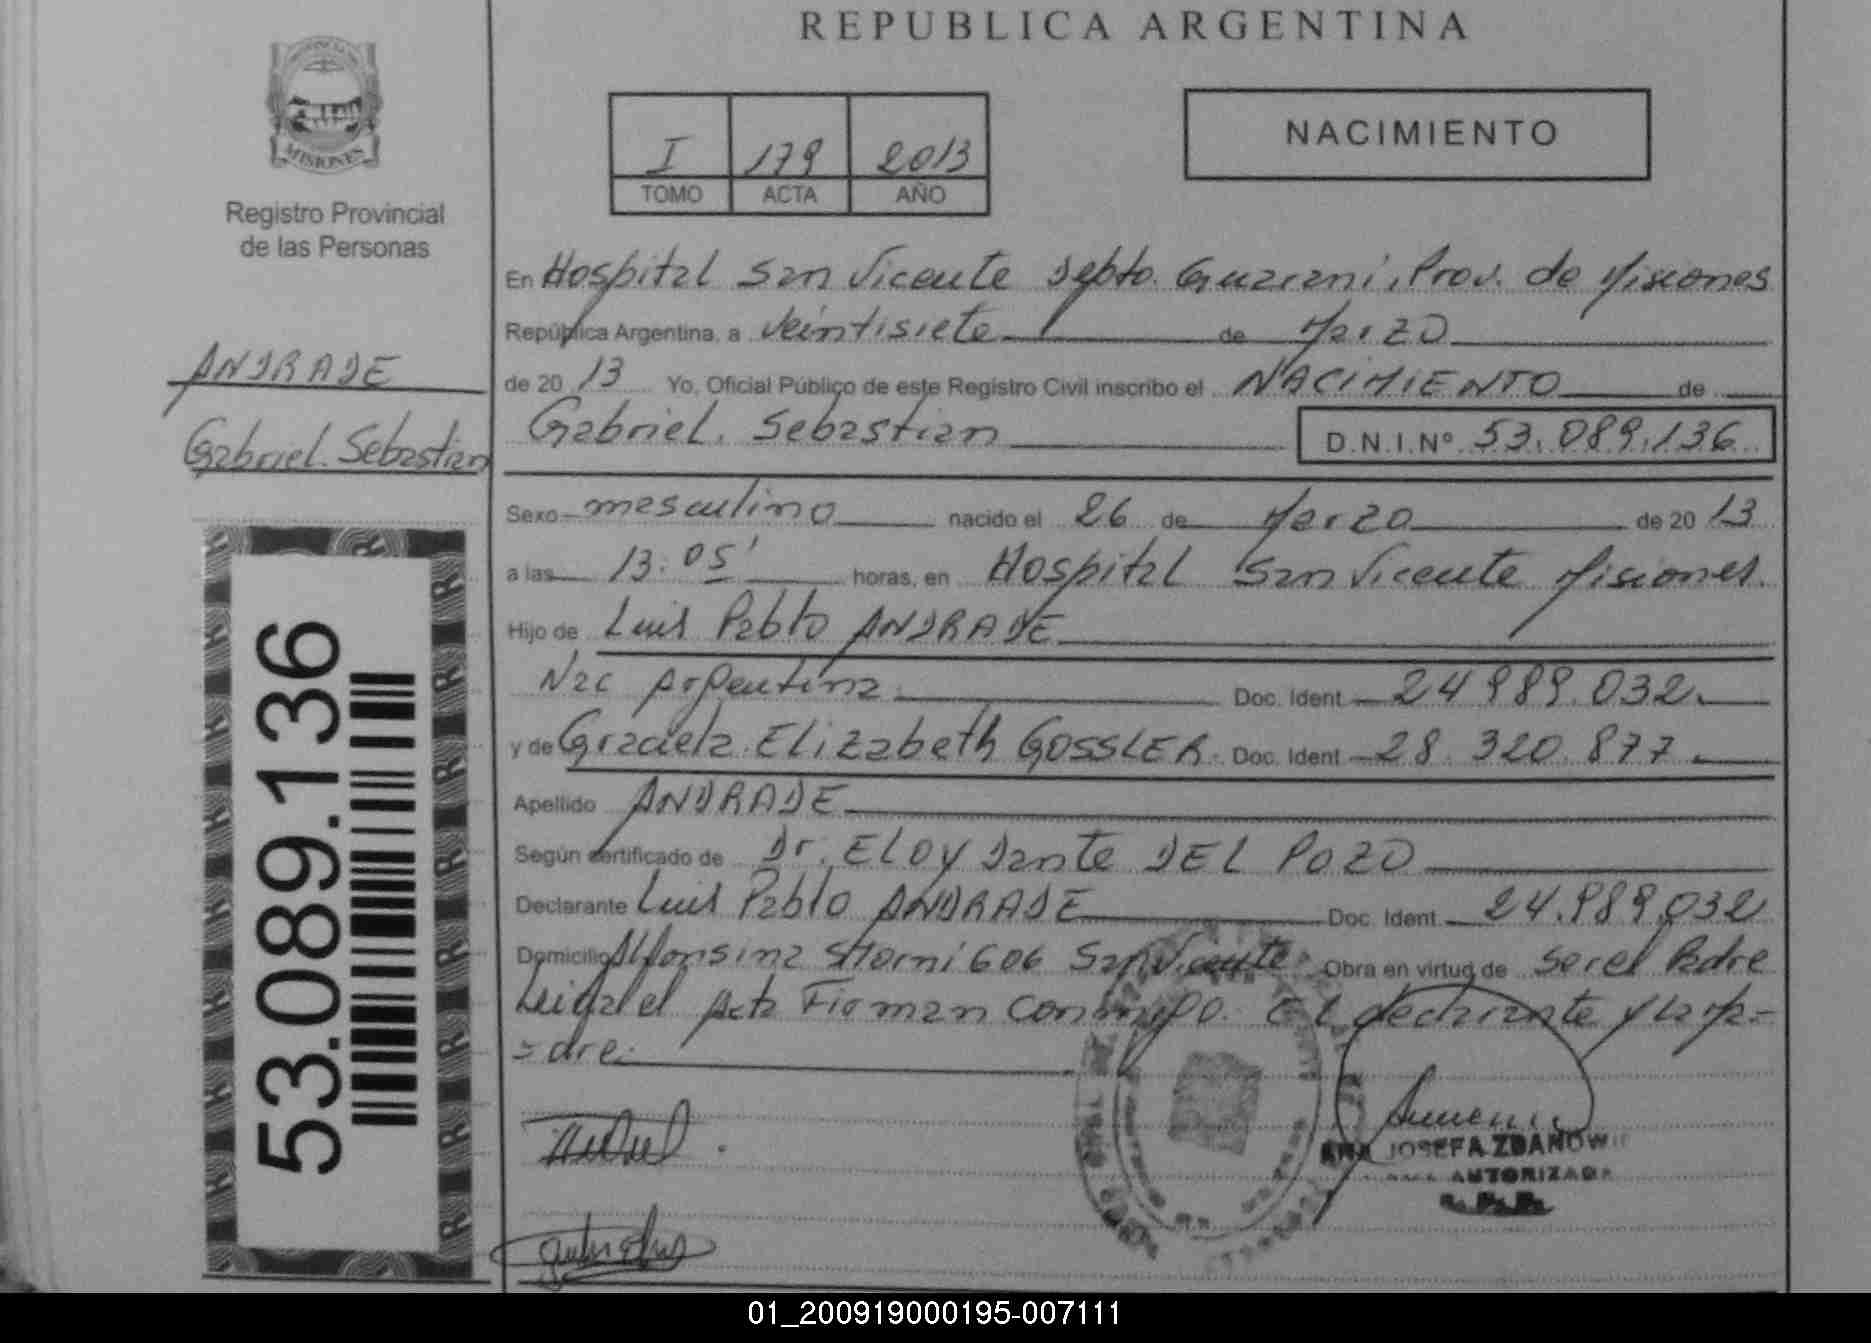 REPUBLICA ARGENTINA
MISIONES
Registro Provincial
de las Personas
I 179 2013
TOMO ACTA AÑO
NACIMIENTO
En Hospital San Vicente Depto. Guarani, Prov. de Misiones
República Argentina, a veintisiete de Marzo
de 20 13 Yo, Oficial Público de este Registro Civil inscribo el NACIMIENTO de
Gabriel Sebastian D.N.I.Nº 53.089.136
ANDRADE
Gabriel Sebastian
Sexo masculino nacido el 26 de Marzo de 20 13
a las 13:05' horas, en Hospital San Vicente Misiones.
Hijo de Luis Pablo ANDRADE
Nac Argentina Doc. Ident 24989.032
y de Graciela Elizabeth GOSSLER. Doc. Ident 28.320.877
Apellido ANDRADE
Según certificado de Dr. ELOY Dante DEL POZO
Declarante Luis Pablo ANDRADE Doc. Ident 24.989.032
Domicilio Alfonsina Storni 606 San Vicente Obra en virtud de ser el Padre
Leida el Acta Firman conmigo. El declarante y la ma=
=dre.
53.089.136
JOSEFA ZDANOW
AUTORIZADA
01_200919000195-007111